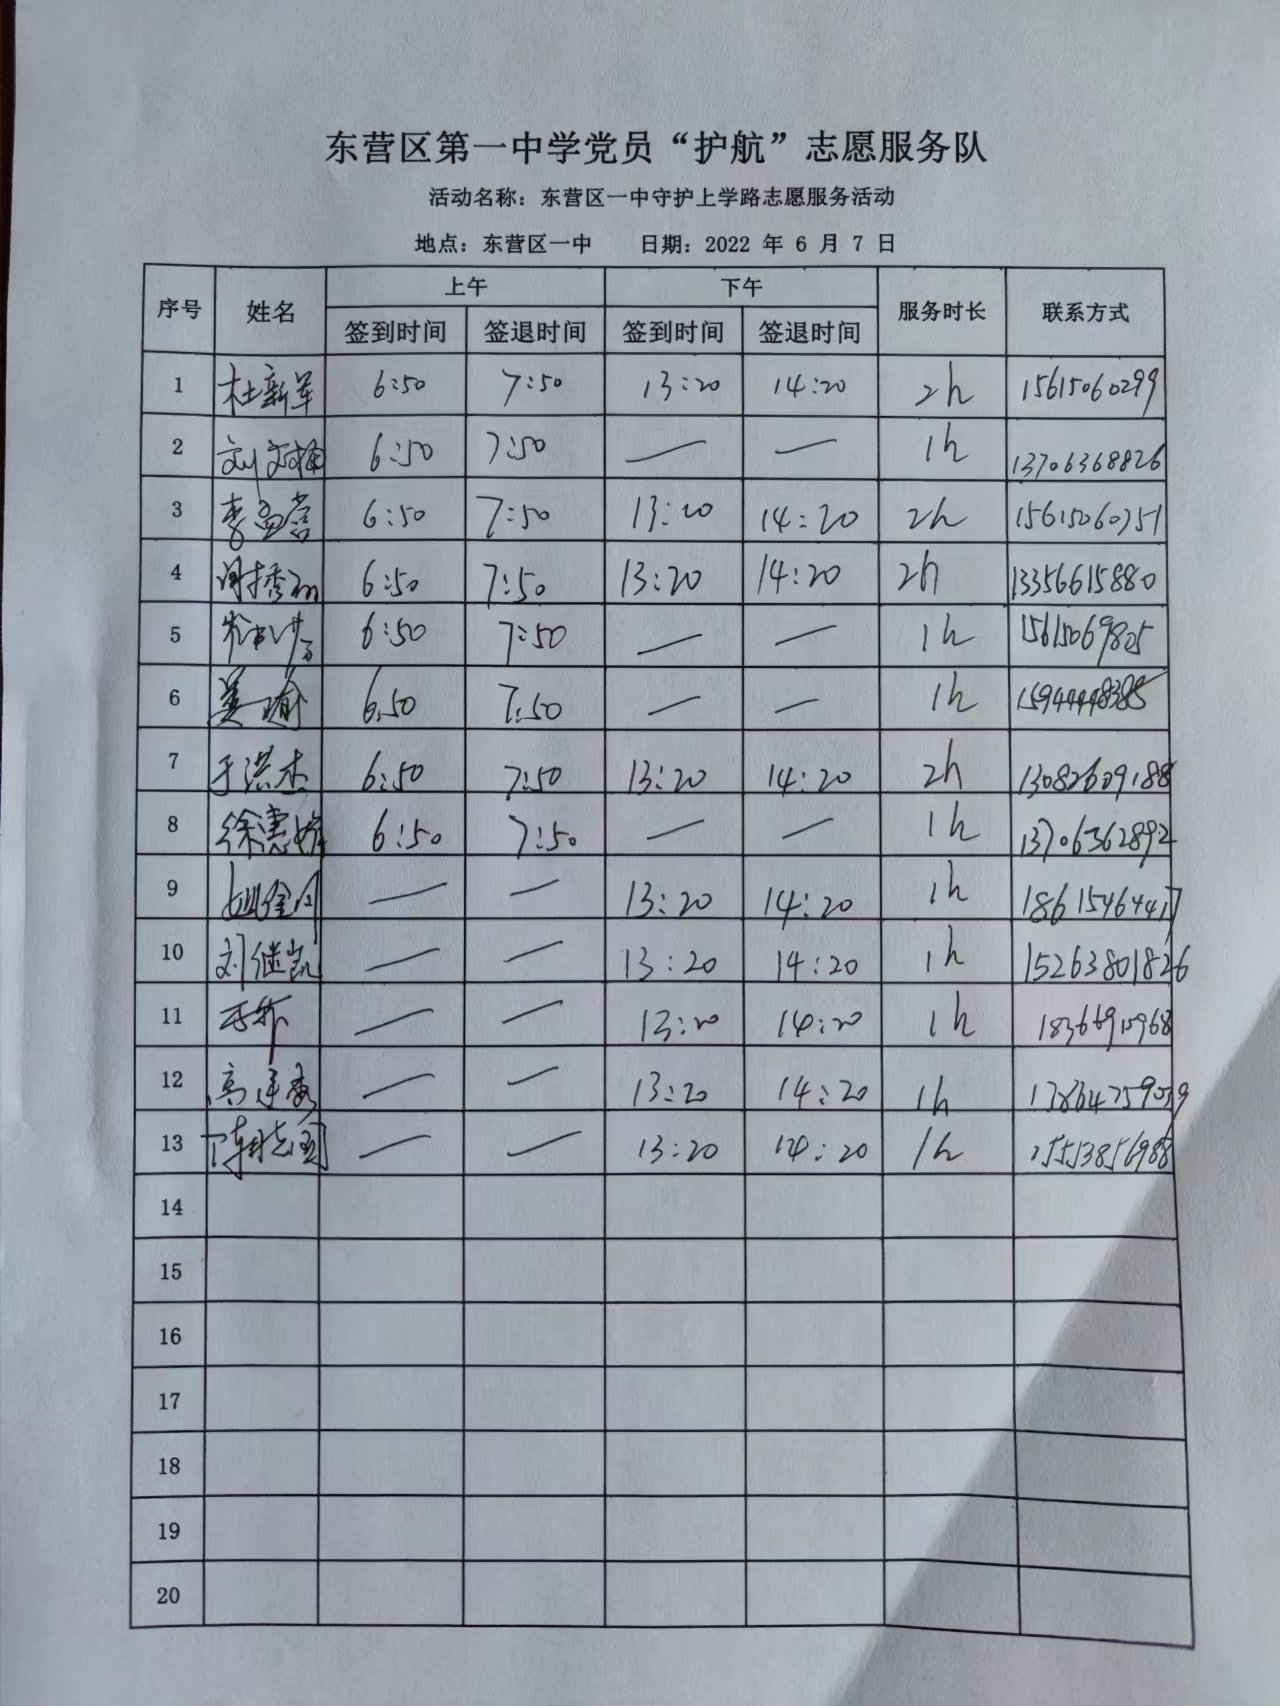 东营区第一中学党员“护航”志愿服务队
活动名称：东营区一中守护上学路志愿服务活动
地点：东营区一中 日期：2022 年 6 月 7 日
序号 姓名 上午 下午 服务时长 联系方式
签到时间 签退时间 签到时间 签退时间
1 杜新军 6:50 7:50 13:20 14:20 2h 15615060299
2 刘 6:50 7:50 — — 1h 13706368826
3 李孟营 6:50 7:50 13:20 14:20 2h 15615060751
4 6:50 7:50 13:20 14:20 2h 13356615880
5 6:50 7:50 — — 1h 15615069825
6 6:50 7:50 — — 1h
7 于洪杰 6:50 7:50 13:20 14:20 2h 13082609188
8 徐惠 6:50 7:50 — — 1h 13706362892
9 — — 13:20 14:20 1h 18615464417
10 刘继凯 — — 13:20 14:20 1h 15263801826
11 — — 13:20 14:20 1h
12 高 — — 13:20 14:20 1h
13 陈志国 — — 13:20 14:20 1h
14
15
16
17
18
19
20